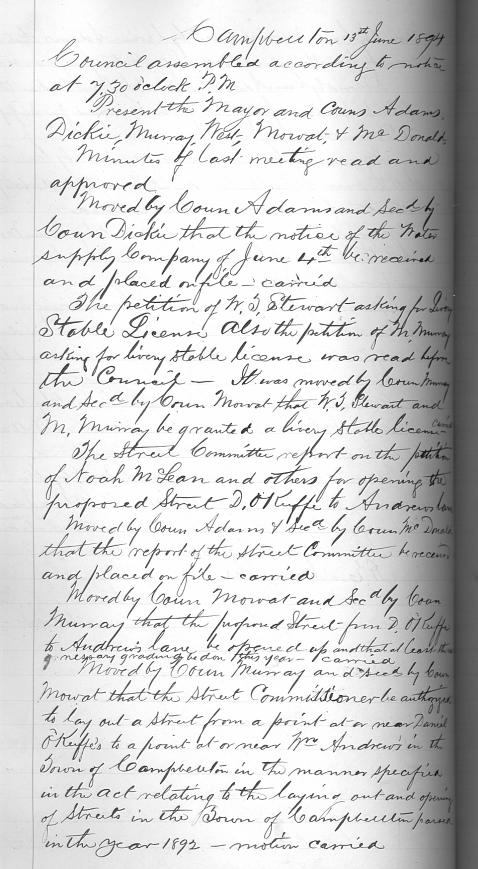 Campbellton 13th June 1894
Council assembled according to notice
at 7,30 oclock P.M
Present the Mayor and Couns Adams,
Dickie, Murray, West, Mowat, & Mc Donald
Minutes of last meeting read and
approved
Moved by Coun Adams and Secd by
Coun Dickie that the notice of the Water
supply Company of June 4th be received
and placed on file – carried
The petition of W. T. Stewart asking for Livery
Stable License Also the petition of M. Murray
asking for livery stable license was read before
the Council – It was moved by Coun Murray
and Secd by Coun Mowat that W. T. Stewart and
M. Murray be granted a livery stable license carried
The Street Committee report on the petition
of Noah McLean and others for opening the
proposed Street D. O'Keffe to Andrews lane
Moved by Coun Adams & Secd by Coun Mc Donald
that the report of the Street Committee be received
and placed on file – carried
Moved by Coun Mowat and Secd by Coun
Murray that the proposed Street from D. O'Keffe
to Andrews lane be opened up and that at least the
nessary grading be don this year – carried
Moved by Coun Murray and Secd by Coun
Mowat that the Street Committioner be authorized
to lay out a street from a point at or near Daniel
O'Keffe's to a point at or near Wm Andrew's in the
Town of Campbellton in the manner specified
in the act relating to the laying out and opening
of Streets in the Town of Campbellton passed
in the year 1892 – motion carried